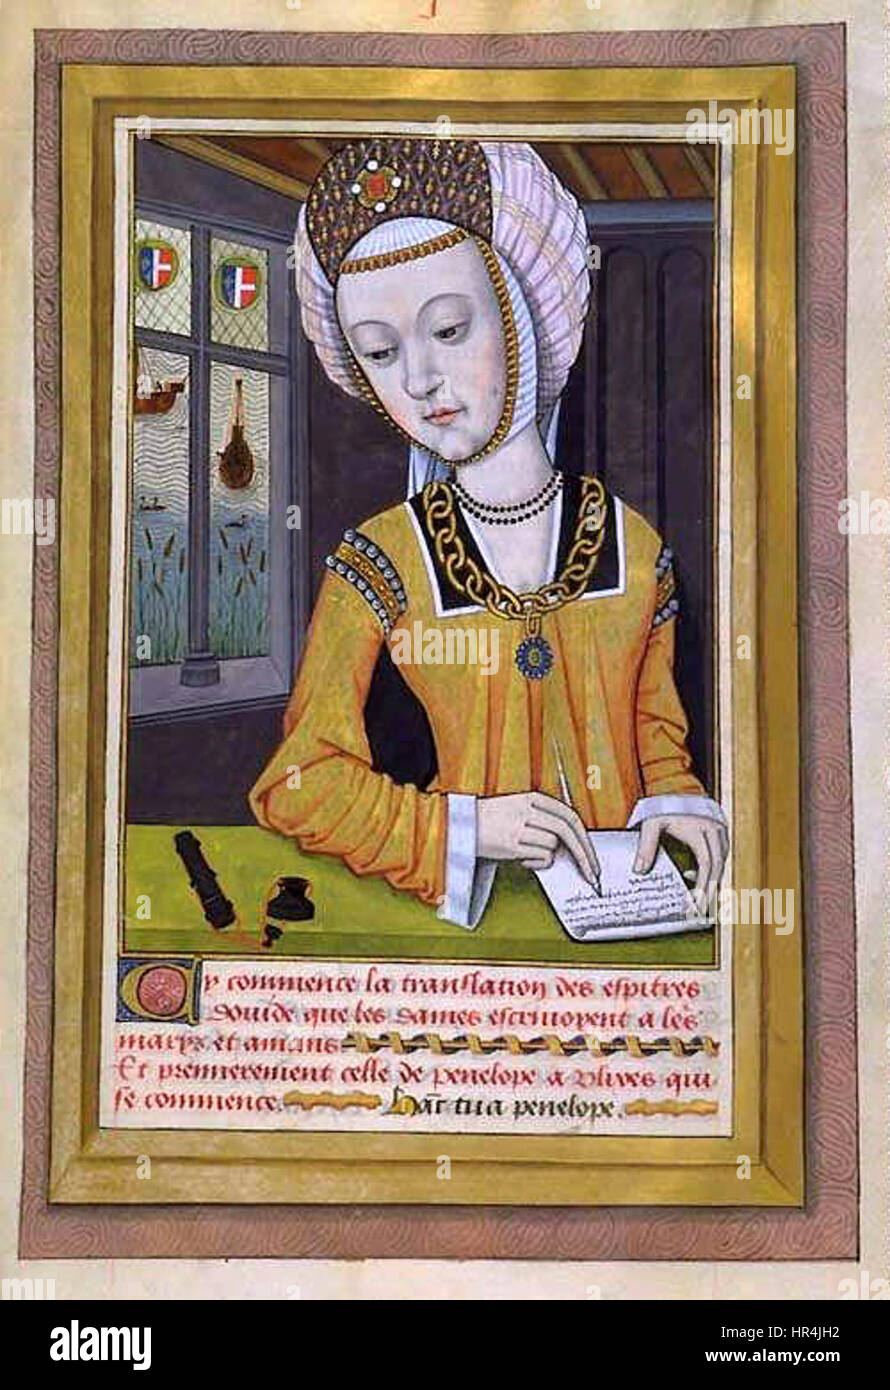 Cy commence la translation des espitres
douide que les dames escriuoyent a les
marys et amans
Et premierement celle de penelope a Vlixes qui
se commence. Hāc tua penelope.
alamy stock photo
HR4JH2
www.alamy.com